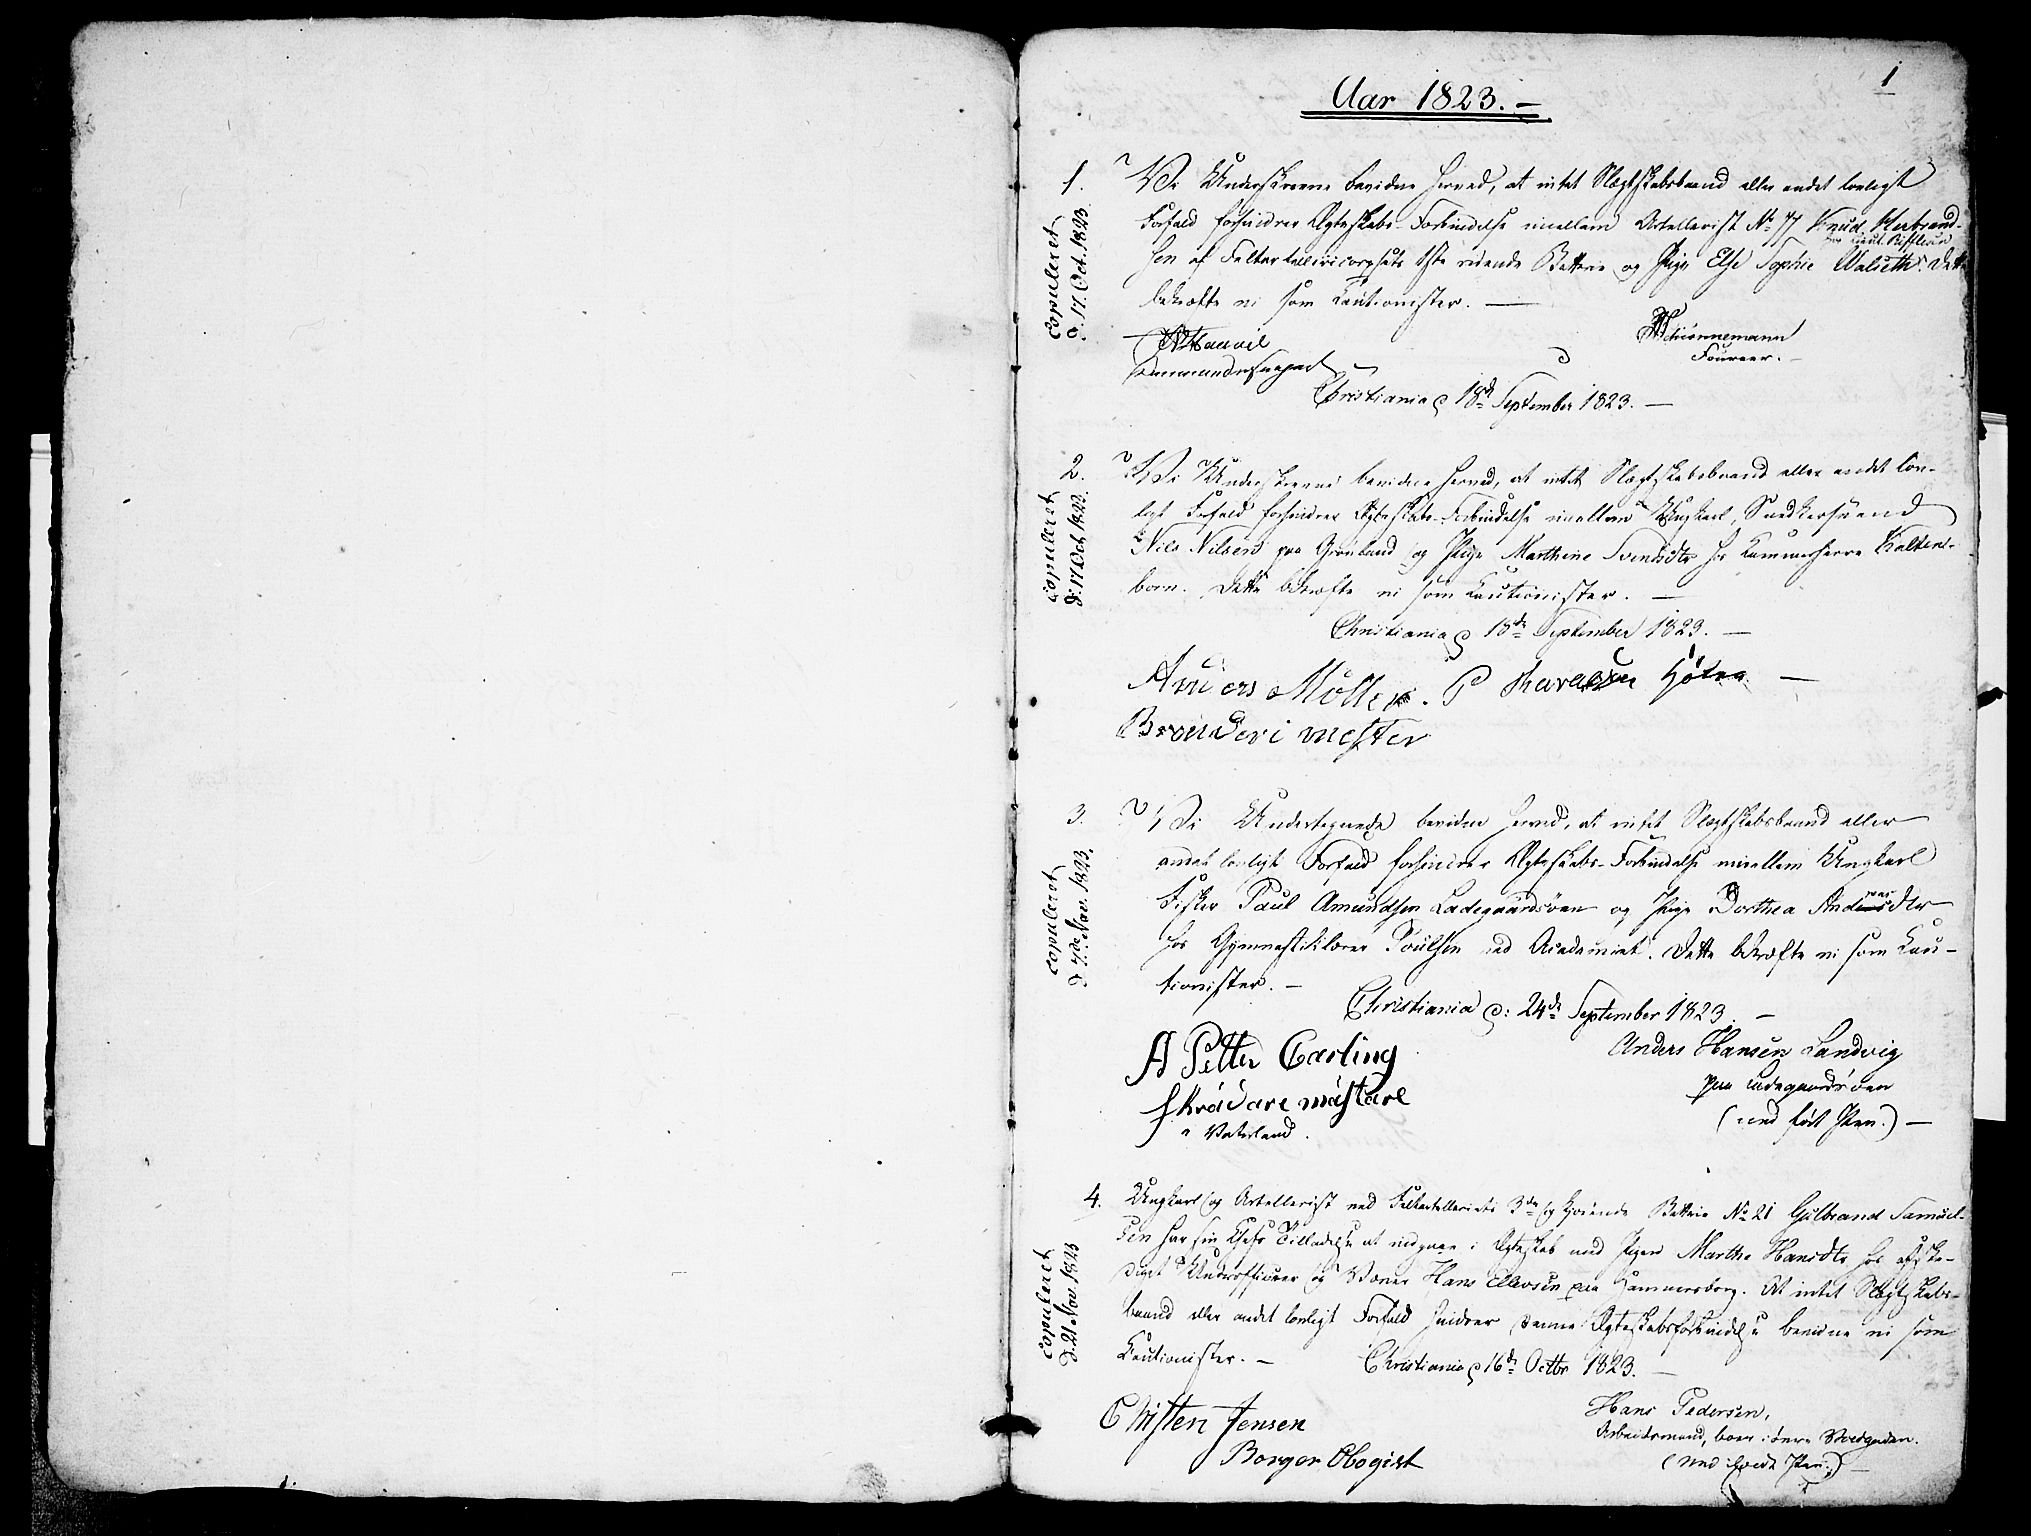 1
Aar 1823.-
1. Vi Underskrevne bevidne herved, at intet Slægtskabsbaand eller andet lovligt
Forfald forhindrer Ægteskabs-Forbindelse imellem Artillerist No 77 Knud Herbrand-
sen af Feltartillericorpsets 1ste ridende Batterie og Pige Else Sophie Walseth. Dette
bekræfte vi som Cautionister. —
Copuleret
d: 17. Oct. 1823.
Schiønnemann
Foureer. -
Christiania d 18de September 1823. —
2. Vi Underskrevne bevidne herved, at intet Slægtskabsbaand eller andet lov-
ligt Forfald forhindrer Ægteskabs-Forbindelse imellem Ungkarl, Snedkersvend
Nils Nilsen paa Grønland og Pige Marthine Svendsdtr hos Kammerherre Kalten-
born. Dette bekræfte vi som Cautionister. —
Copuleret
d: 17 Oct. 1823.
Christiania d 18de September 1823. —
Anders Møller. P
mester
3. Vi Undertegnede bevidne herved, at intet Slægtskabsbaand eller
andet lovligt Forfald forhindrer Ægteskabs-Forbindelse imellem Ungkarl
Fisker Paul Amundsen Ladegaardsøen og Pige Dorthea Andersdtr
hos Gymnastiklærer Poulsen ved Academiet. Dette bekræfte vi som Cau-
tionister. —
Copuleret
d 7de Nov. 1823.
Christiania d: 24de September 1823. —
A Petter Carling
skrädare mästare
i Vaterland.
Anders Hansen Sandvig
paa Ladegaardsøen
(med ført Pen.) —
4. Ungkarl og Artillerist ved Feltartilleriets 3de kjørende Batterie No 21 Gulbrand Samuel-
sen har sin Chefs Tilladelse at indgaae i Ægteskab med Pigen Marthe Hansdtr hos afske-
diget Underofficeer og Hans Ellevsen paa Hammersborg. At intet Slægtskabs-
baand eller andet lovligt Forfald hindrer denne Ægteskabsforbindelse bevidne vi som
Cautionister. — Christiania d 16de Octbr 1823. —
Copuleret
d. 21 Nov. 1823
Christen Jensen
Borger
Hans Pedersen,
Arbeidsmand, boer i øvre Voldgaden.
(med ført Pen.) —